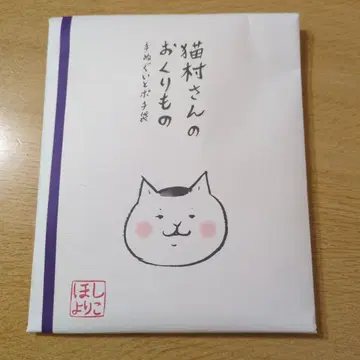 猫村さんの
おくりもの
手ぬぐいとポチ袋
ほし
よりこ